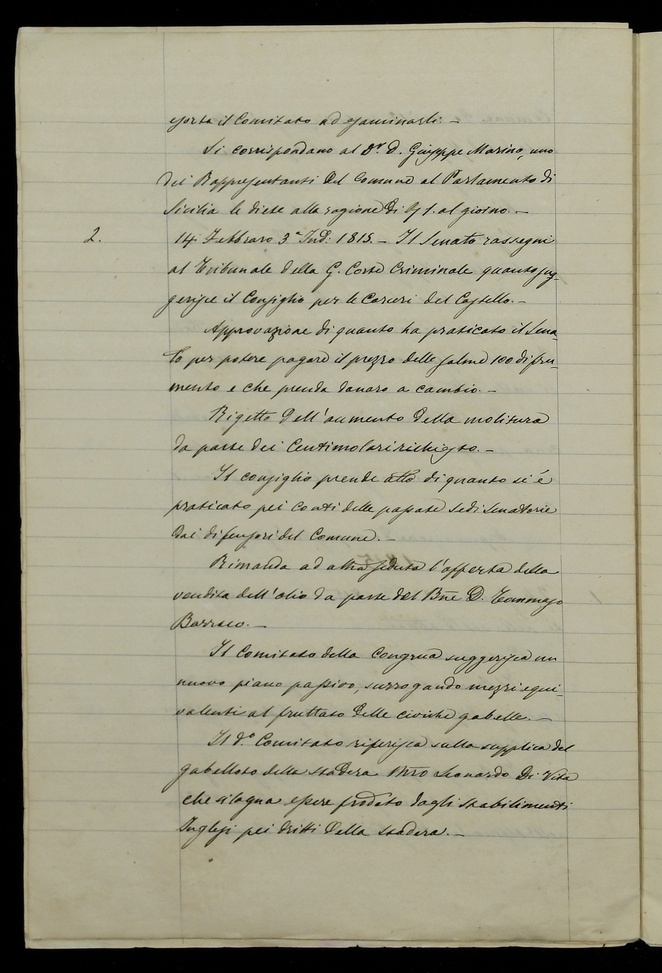 esorta il Comitato ad esaminarli. -
Si corrispondano al Dr. D. Giuseppe Marino, uno
dei Rappresentanti del Comune al Parlamento di
Sicilia le diete alla ragione di 1. al giorno. -
2. 14 Febbraro 3a Ind: 1815. - Il Senato rassegni
al Tribunale della G. Corte Criminale quanto sug-
gerisce il Consiglio per le Carceri del Castello. -
Approvazione di quanto ha praticato il Sena-
to per potere pagare il prezzo delle salme 100 di fru-
mento e che prenda danaro a cambio. -
Rigetto dell'aumento della molitura
da parte dei Centimolari richiesto. -
Il consiglio prende atto di quanto si é
praticato pei conti delle passate sedi Senatorie
dai difensori del Comune. -
Rimanda ad altra seduta l'offerta della
vendita dell'olio da parte del Bne D. Tommaso
Barraco. -
Il Comitato della Congrua suggerisca un
nuovo piano passivo, surrogando mezzi equi-
valenti al fruttato delle civiche gabelle. -
Il do Comitato riferisca sulla supplica del
gabelloto della stadera Mro Leonardo Di Vita
che si lagna essere frodato dagli stabilimenti
Inglesi pei dritti della stadera. -